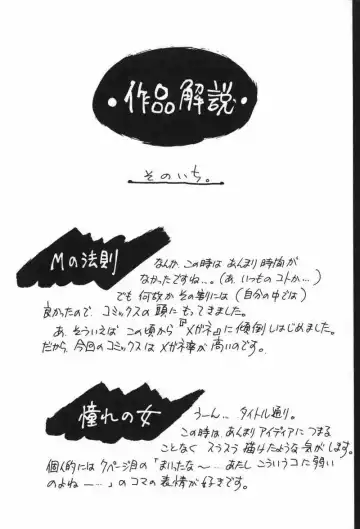 ・作品解説・
そのいち。
Mの法則
なんか、この時は あんまり時間が
なかったですね…。(あ、いつものコトか…)
でも 何故か その割には (自分の中では)
良かったので、コミックスの頭に もってきました。
あ、そういえば この頃から『メガネ』に 傾倒しはじめました。
だから、今回のコミックスは メガネ率が 高いのです。
憧れの女
うーん… タイトル通り。
この時は、あんまり アイディアに つまる
ことなく スラスラ 描けたような 気がします。
個人的には 7ページ目の「まいったな〜…あたし こういうコに弱い
のよね〜…」の コマの 表情が 好きです。